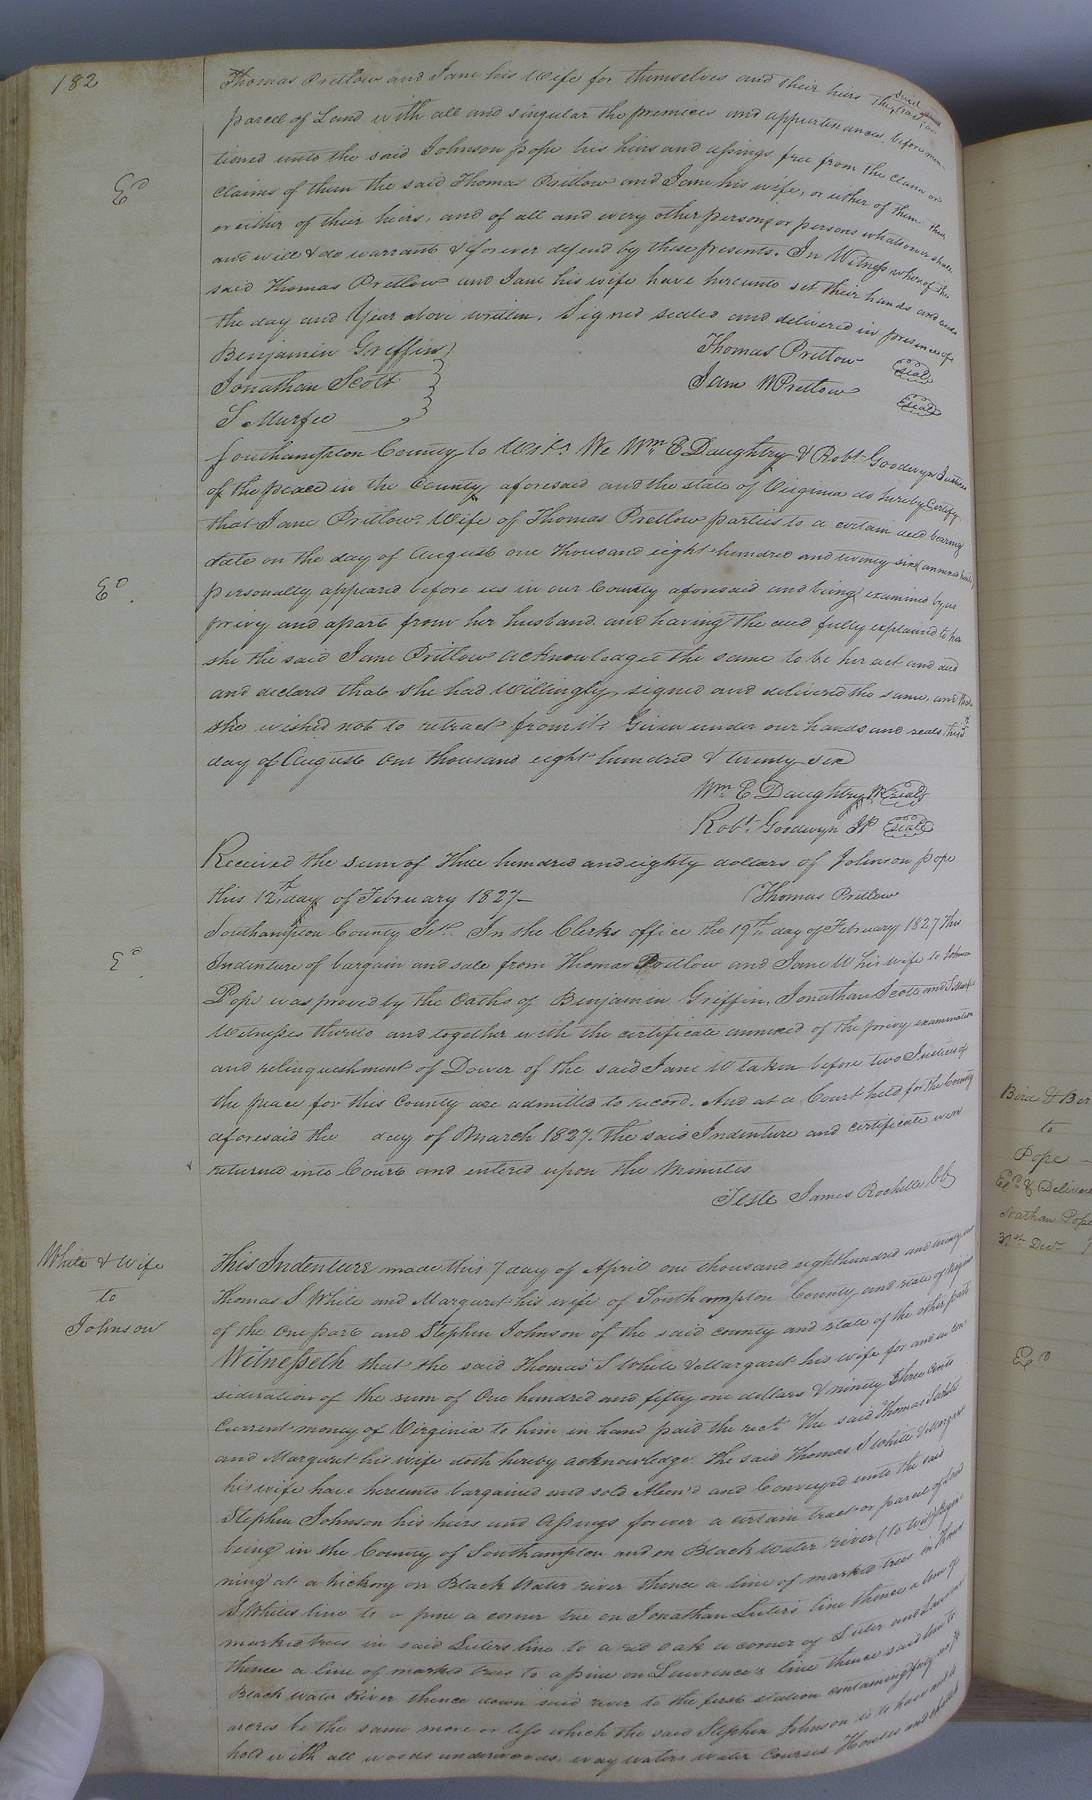 182
Thomas Pretlow and Jane his Wife for themselves and their heirs The said
parcel of Land with all and singular the premises and appurtenances before men
tioned unto the said Johnson pope his heirs and assings free from the claim or
Claims of them the said Thomas Pretlow and Jane his wife, or either of them their
or either of their heirs, and of all and every other person or persons whatsoever shall
and will & do warrant & forever defend by these presents. In Witness whereof the
said Thomas Pretlow and Jane his wife have hereunto set their hands and seals
the day and Year above written. Signed sealed and delivered in presence of
Benjamin Griffin
Thomas Pretlow seal
Jonathan Scott
Jane W Pretlow seal
S Murfee
Southampton County to Wit: We Wm. E Daughtry & Robt Goodwyn Justices
of the peace in the County aforesaid and the state of Virginia do hereby Certify
that Jane Pretlow Wife of Thomas Pretlow parties to a certain deed bearing
date on the day of August one thousand eight hundred and twenty six annexed hereto
personally appeared before us in our County aforesaid and being examined by us
privy and apart from her husband and having the deed fully explained to her
she the said Jane Pretlow acknowledged the same to be her act and deed
and declared that she had willingly signed and delivered the same, and that
she wished not to retract from it. Given under our hands and seals this
day of August one thousand eight hundred & twenty six
Wm. E Daughtry seal
Robt. Goodwyn JP seal
Received the sum of three hundred and eighty dollars of Johnson pope
this 12th day of February 1827-
Thomas Pretlow
Southampton County Sct. In the Clerks office the 19th day of February 1827 This
Indenture of bargain and sale from Thomas Pretlow and Jane W his wife to Johnson
Pope was proved by the Oaths of Benjamin Griffin, Jonathan Scott and S Murfee
Witnesses thereto and together with the certificate annexed of the privy examination
and relinquishment of Dower of the said Jane W taken before two Justices of
the peace for this County are admitted to record. And at a Court held for the County
aforesaid the day of March 1827. The said Indenture and certificate were
returned into Court and entered upon the Minutes
Teste James Rochelle
White & Wife
to
Johnson
This Indenture made this 7 day of April one thousand eight hundred and twenty
Thomas S White and Margaret his wife of Southampton County and state of Virginia
of the one part and Stephen Johnson of the said county and state of the other part
Witnesseth that the said Thomas S White & Margaret his wife for and in con
sideration of the sum of One hundred and fifty one dollars & ninety three cents
Current money of Virginia to him in hand paid the rect. the said Thomas S White
and Margaret his wife doth hereby acknowledge. The said Thomas S White & Margaret
his wife have hereunto bargained and sold Alien'd and Conveyed unto the said
Stephen Johnson his heirs and assings forever a certain tract or parcel of land
being in the County of Southampton and on Black water river (to wit) Begin
ning at a hickory on Black Water river thence a line of marked trees in Thomas
S Whites line to a pine a corner tree on Jonathan Luter's line thence a line of
marked trees in said Luters line to a red oak a corner of Luter and Lawrence
thence a line of marked trees to a pine on Lawrence's line thence said line to
Black Water River thence down said river to the first station containing
acres be the same more or less which the said Stephen Johnson is to have and to
hold with all woods underwoods, way waters water Courses Houses and
to
Pope
31st Decr.